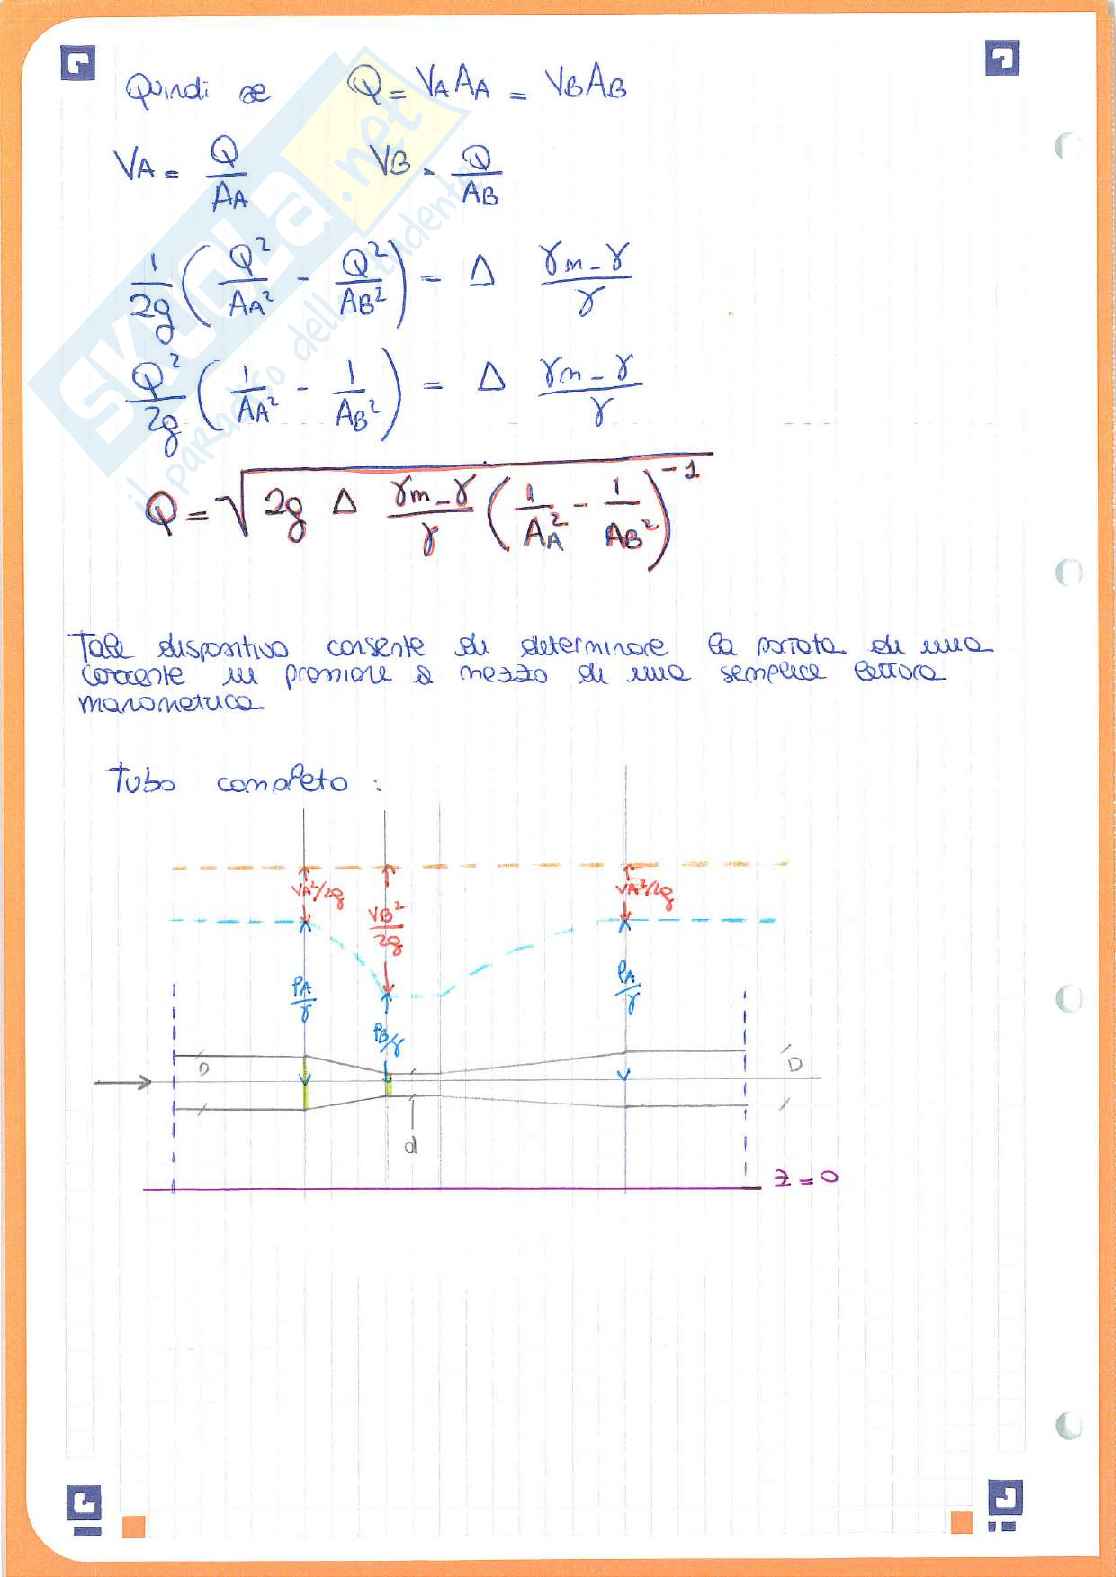 Quindi se Q = VA AA = VB AB
VA = Q/AA VB = Q/AB
1/2g (Q²/AA² - Q²/AB²) = Δ γm-γ/γ
Q²/2g (1/AA² - 1/AB²) = Δ γm-γ/γ
Q = √2g Δ γm-γ/γ (1/AA² - 1/AB²)⁻¹
Tale dispositivo consente di determinare la portata di una
corrente in pressione a mezzo di una semplice lettura
manometrica
Tubo completo :
VA²/2g VB²/2g VA²/2g
PA/γ PB/γ PA/γ
D D
d
z = 0
SKUOLA.net
il paradiso dello studente